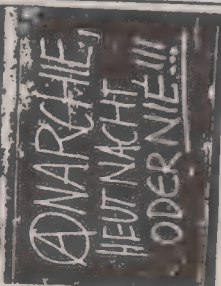 ANARCHIE,
HEUT NACHT
ODER NIE!!!